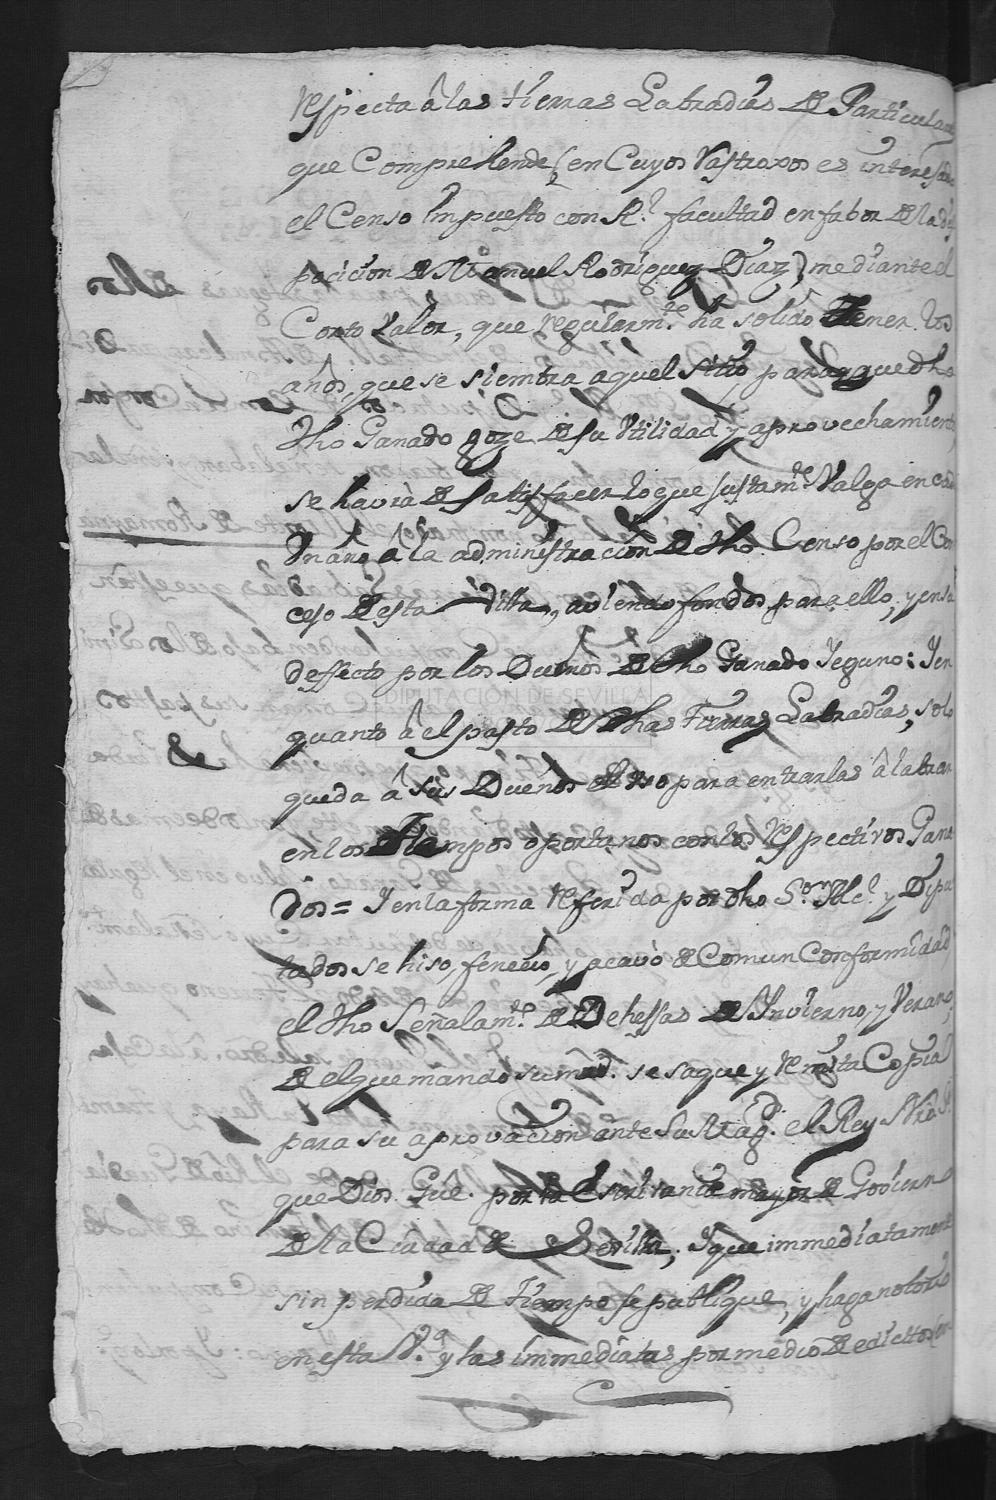 respecta â las tierras Labradias de Particulares
que Comprehende (en Cuyos Rastroxos es interesado
el Censo impuesto con Rl. facultad en fabor de la dis
posicion de Manuel Rodriguez Diaz) mediante el
Corto Valor, que regularmte. ha solido tener los
años, que se siembra aquel sitio, para que dho
dho Ganado goze de su Utilidad y aprovechamiento
se havrà de satisfacer lo que justamte. Valga en cada
Un año a la administracion de dho Censo por el Con
cejo de esta Villa, aviendo fondos para ello, y en su
deffecto por los Dueños de dho Ganado Yeguno: Y en
quanto â el pasto de dhas Tierras Labradias, solo
queda â sus Dueños el uso para entrarlas â labrar
en los tiempos oportunos con los respectivos Gana
dos = Y en la forma referida por dho Sor. Alce. y Dipu
tados se hiso, fenecio, y acavò de Comun Conformidad
el dho Señalamto. de Dehessas de Ynvierno, y Verano,
de el que mando su mrd. se saque y remita Copia
para su aprovacion ante Su Mag. el Rey Ntro Sr.
que Dios Gûe. por la Escrivania mayor de Govierno
de la Ciudad de Sevilla; Y que immediatamente
sin perdida de tiempo se publique, y haga notorio
en esta Va. y las immediatas por medio de edictos
DIPUTACIÓN DE SEVILLA